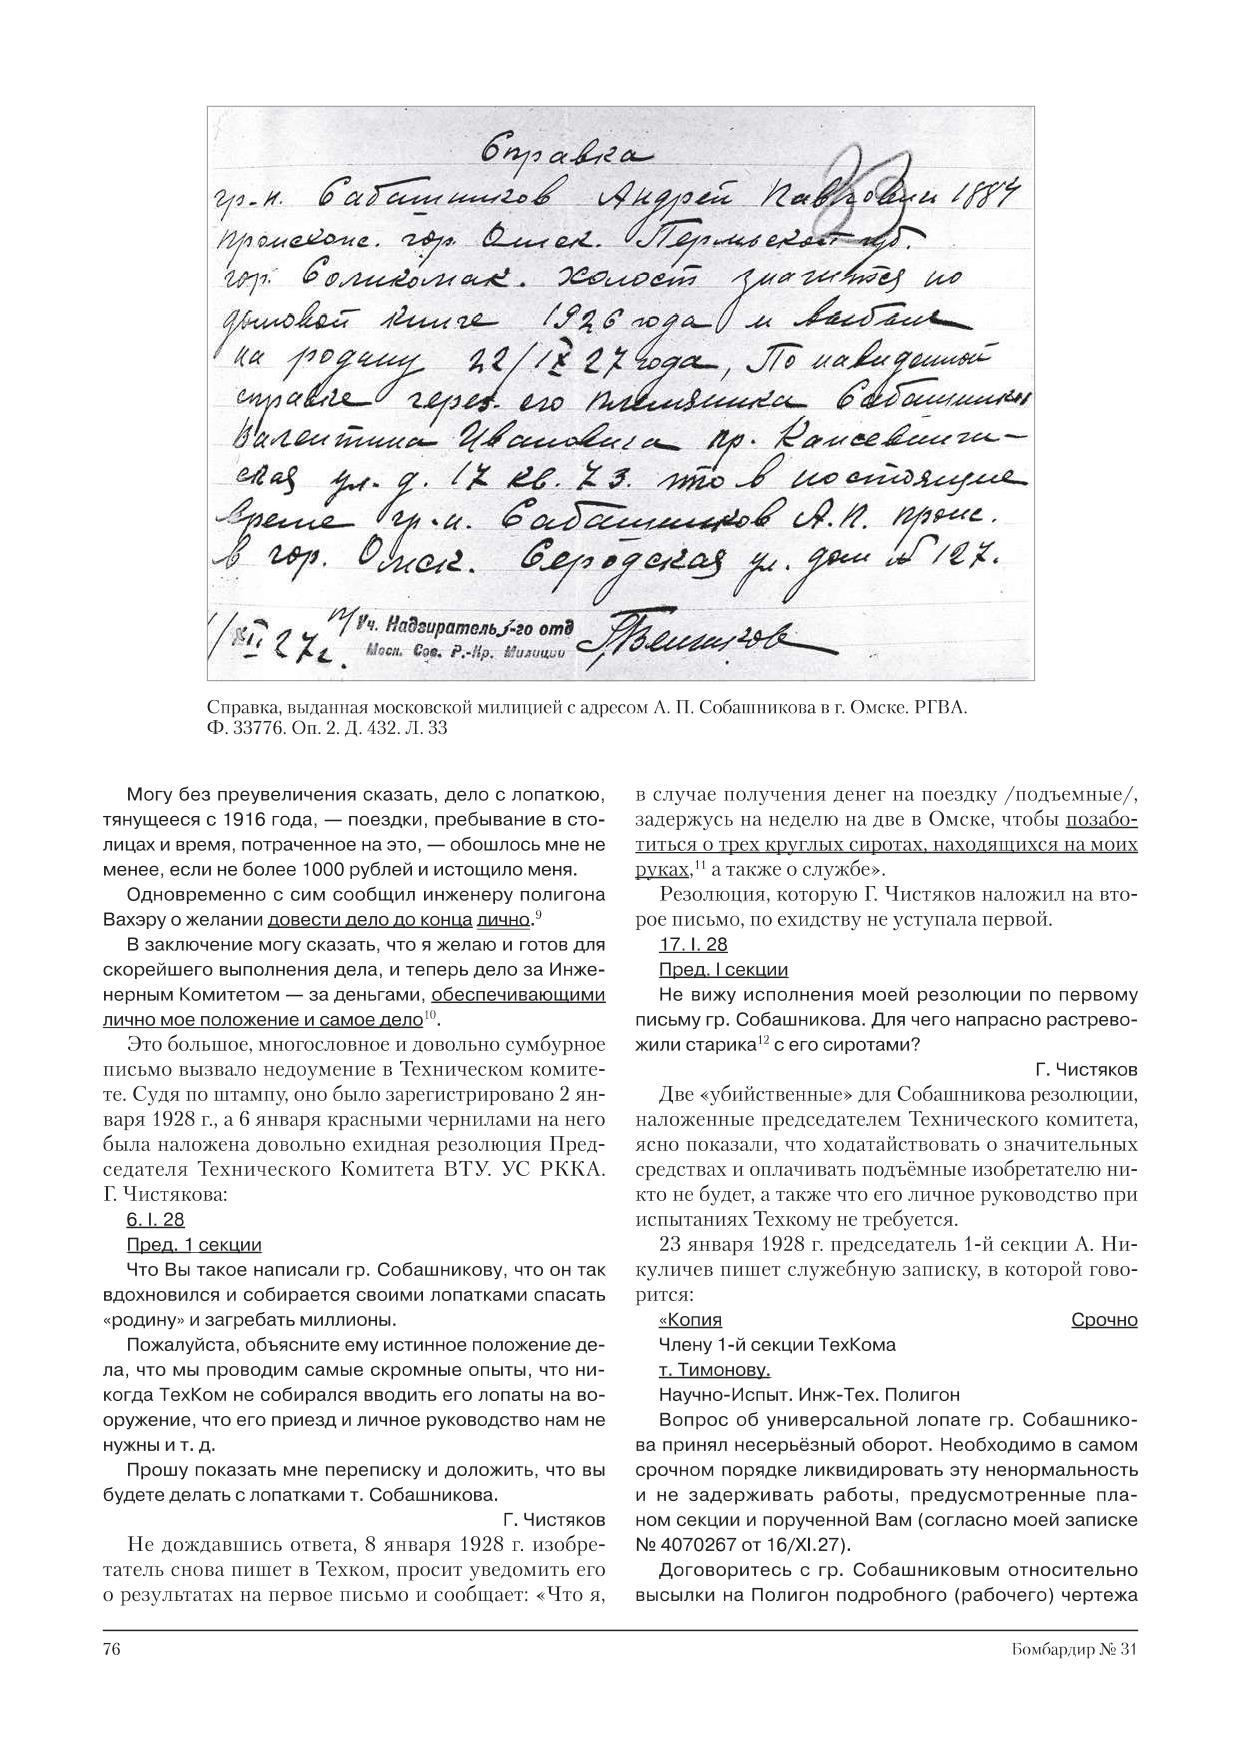 Справка
гр-н. Сабашников Андрей Павлович 1884
33
происхож. гор. Омск. Пермской губ.
гор. Соликомак. холост значится по
домовой книге 1926 года и выбыл
на родину 22/IX 27 года, По наведенной
справке через его племянника Сабашников
Валентина Ивановича пр.
ская ул. д. 17 кв. 73. что в настоящие
время гр-н. Сабашников А.П. прож.
в гор. Омск. ул. дом № 127.
1/XII 27г.
Уч. Надзиратель -го отд
Моск. Сов. Р.-Кр. Милиции
Справка, выданная московской милицией с адресом А. П. Собашникова в г. Омске. РГВА.
Ф. 33776. Оп. 2. Д. 432. Л. 33
Могу без преувеличения сказать, дело с лопаткою,
тянущееся с 1916 года, — поездки, пребывание в сто-
лицах и время, потраченное на это, — обошлось мне не
менее, если не более 1000 рублей и истощило меня.
Одновременно с сим сообщил инженеру полигона
Вахэру о желании довести дело до конца лично.9
В заключение могу сказать, что я желаю и готов для
скорейшего выполнения дела, и теперь дело за Инже-
нерным Комитетом — за деньгами, обеспечивающими
лично мое положение и самое дело10.
Это большое, многословное и довольно сумбурное
письмо вызвало недоумение в Техническом комите-
те. Судя по штампу, оно было зарегистрировано 2 ян-
варя 1928 г., а 6 января красными чернилами на него
была наложена довольно ехидная резолюция Пред-
седателя Технического Комитета ВТУ. УС РККА.
Г. Чистякова:
6. I. 28
Пред. 1 секции
Что Вы такое написали гр. Собашникову, что он так
вдохновился и собирается своими лопатками спасать
«родину» и загребать миллионы.
Пожалуйста, объясните ему истинное положение де-
ла, что мы проводим самые скромные опыты, что ни-
когда ТехКом не собирался вводить его лопаты на во-
оружение, что его приезд и личное руководство нам не
нужны и т. д.
Прошу показать мне переписку и доложить, что вы
будете делать с лопатками т. Собашникова.
Г. Чистяков
Не дождавшись ответа, 8 января 1928 г. изобре-
татель снова пишет в Техком, просит уведомить его
о результатах на первое письмо и сообщает: «Что я,
в случае получения денег на поездку /подъемные/,
задержусь на неделю на две в Омске, чтобы позабо-
титься о трех круглых сиротах, находящихся на моих
руках,11 а также о службе».
Резолюция, которую Г. Чистяков наложил на вто-
рое письмо, по ехидству не уступала первой.
17. I. 28
Пред. I секции
Не вижу исполнения моей резолюции по первому
письму гр. Собашникова. Для чего напрасно растрево-
жили старика12 с его сиротами?
Г. Чистяков
Две «убийственные» для Собашникова резолюции,
наложенные председателем Технического комитета,
ясно показали, что ходатайствовать о значительных
средствах и оплачивать подъёмные изобретателю ни-
кто не будет, а также что его личное руководство при
испытаниях Техкому не требуется.
23 января 1928 г. председатель 1-й секции А. Ни-
куличев пишет служебную записку, в которой гово-
рится:
«Копия Срочно
Члену 1-й секции ТехКома
т. Тимонову.
Научно-Испыт. Инж-Тех. Полигон
Вопрос об универсальной лопате гр. Собашнико-
ва принял несерьёзный оборот. Необходимо в самом
срочном порядке ликвидировать эту ненормальность
и не задерживать работы, предусмотренные пла-
ном секции и порученной Вам (согласно моей записке
№ 4070267 от 16/XI.27).
Договоритесь с гр. Собашниковым относительно
высылки на Полигон подробного (рабочего) чертежа
76
Бомбардир № 31